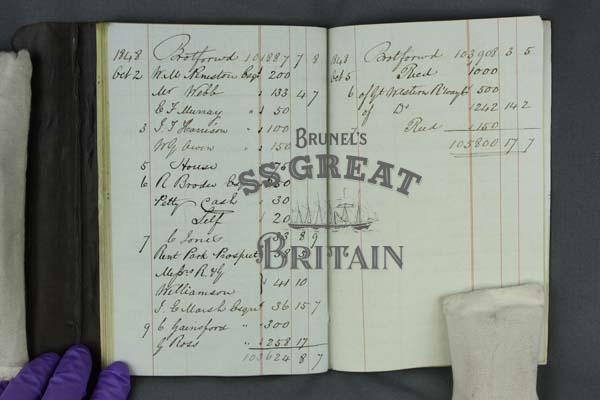 1848 Brotforwd 101887 7 8
Oct 2 Will Keneston Esqr 200
Mr Webb " 133 4 7
C F Murray " 50
3 J T Harrison " 100
W G Owen " 150
5 House 75
6 R Brodie
Petty Cash " 30
Self " 20
7 C Jones 33 8 9
Rent Park Prospect 38
Messrs R & G
Williamson " 41 10
J. C. Marsh Esqr 36 15 7
9 C Gainsford " 300
G Ross " 258 17
103624 8 7
1848 Brotforwd 103908 3 5
Oct 5 Recd 1000
6 of Gt Western Rlway 500
of Do 1242 14 2
Recd 150
105800 17 7
BRUNEL'S
SS GREAT
BRITAIN